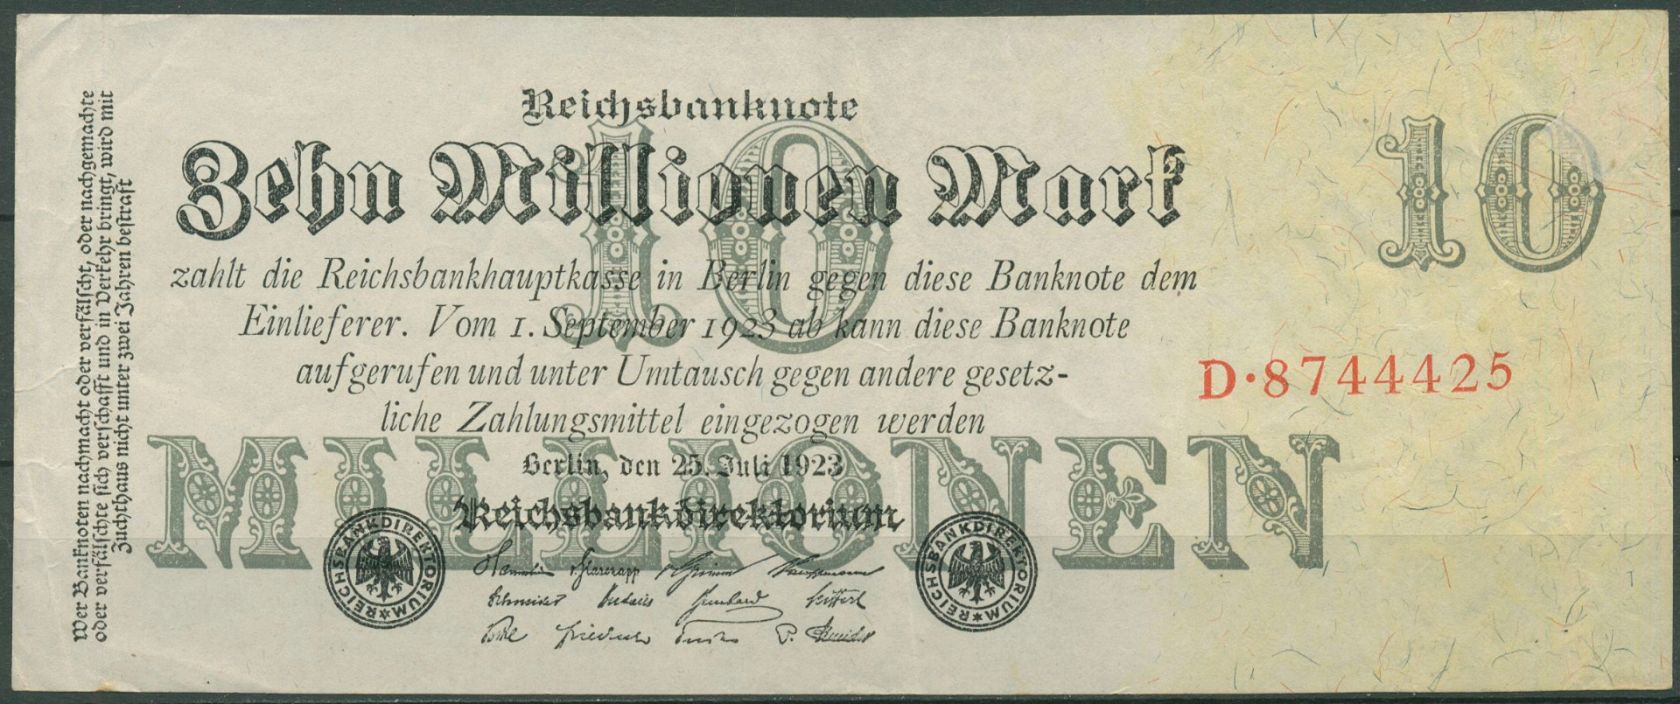 Reichsbanknote
Zehn Millionen Mark
10
10
zahlt die Reichsbankhauptkasse in Berlin gegen diese Banknote dem
Einlieferer. Vom 1. September 1923 ab kann diese Banknote
aufgerufen und unter Umtausch gegen andere gesetz-
liche Zahlungsmittel eingezogen werden
D·8744425
MILLIONEN
Berlin, den 25. Juli 1923
Reichsbankdirektorium
REICHSBANKDIREKTORIUM
REICHSBANKDIREKTORIUM
Schneider
Wer Banknoten nachmacht oder verfälscht, oder nachgemachte
oder verfälschte sich verschafft und in Verkehr bringt, wird mit
Zuchthaus nicht unter zwei Jahren bestraft